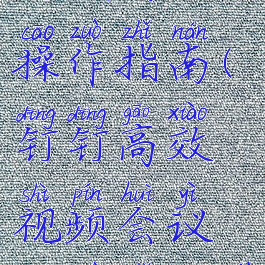 cāo zuò zhǐ nán
操作指南(
dīng dīng gāo xiào
钉钉高效
shì pín huì yì
视频会议